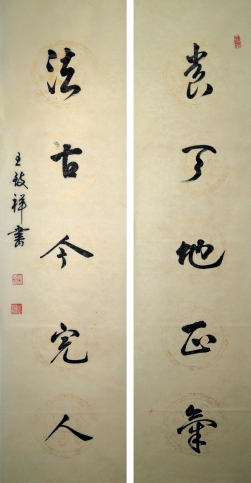 养天地正氣
法古今完人
王啟祥書